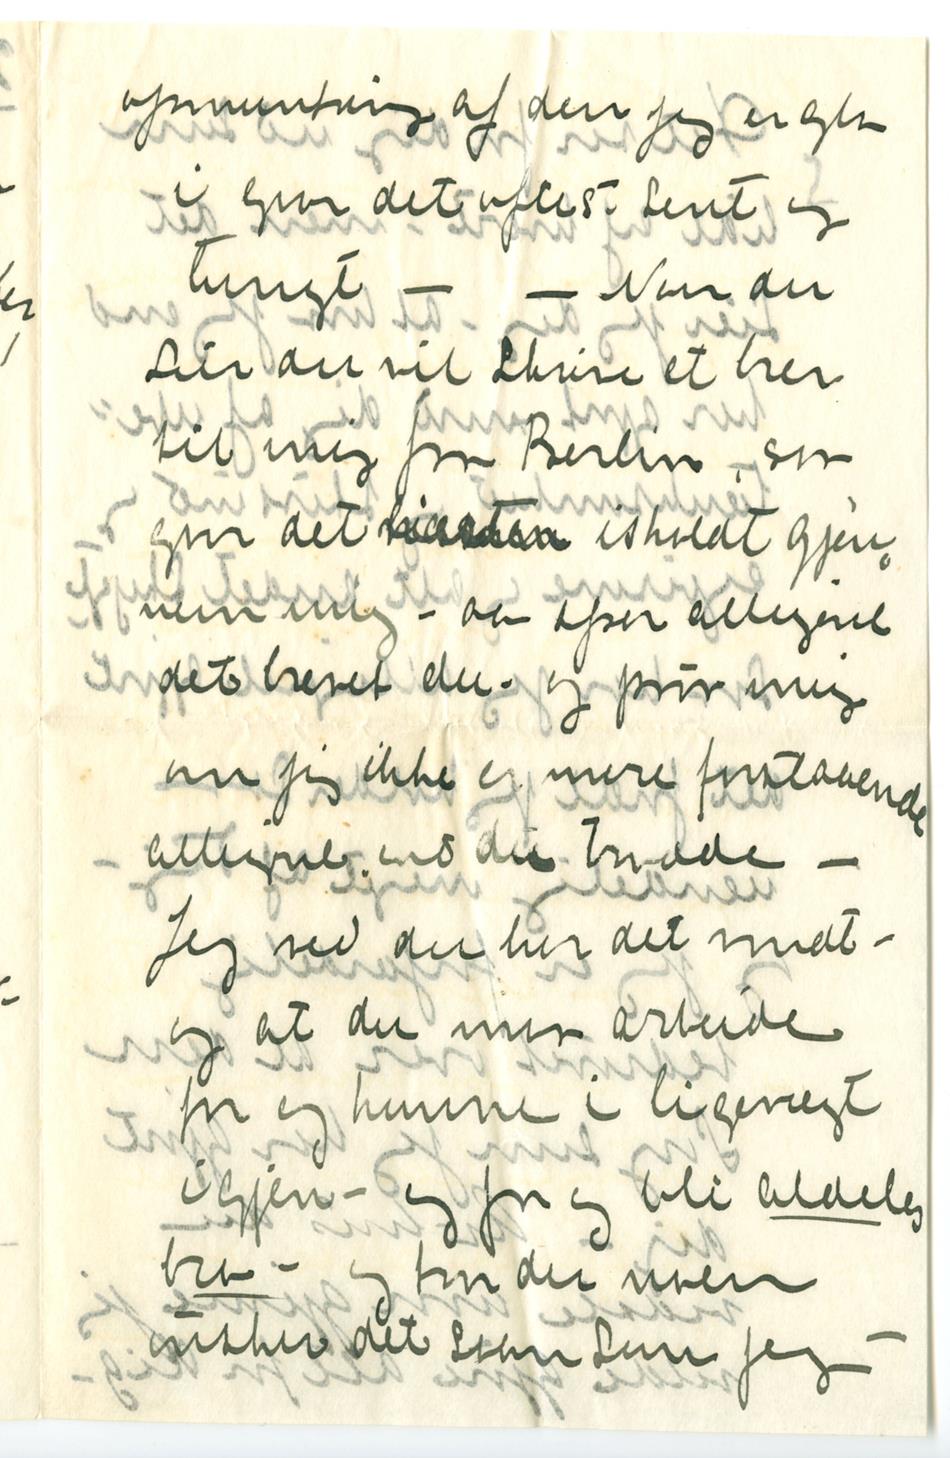 opmuntring af den jeg er glad
i gjør det oftest sent og
tungt — — Naar du
sier du vil skrive et brev
til mig fra Berlin, saa
gjør det iskoldt gjen,
nem mig - aa spar alligevel
det brevet du - og prøv mig
om jeg ikke er mere forstaaende
alligevel end du trodde —
Jeg ved du har det vondt -
og at du maa arbeide
for og komme i ligevægt
igjen - og for og bli aldeles
bra - og tror du noen
ønsker det saa som jeg —